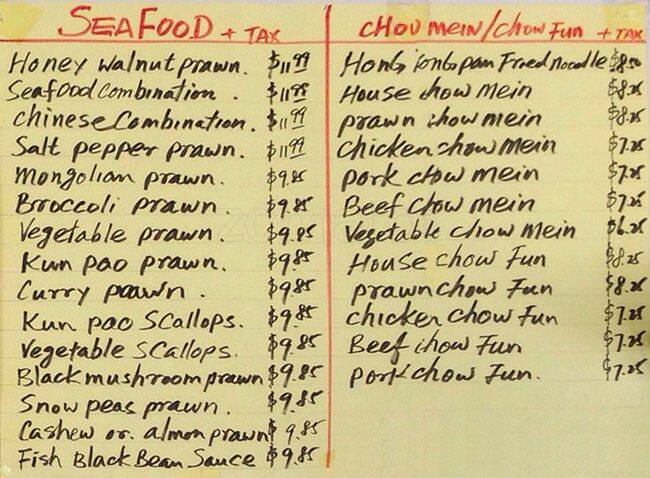 SEAFOOD + TAX
Honey walnut prawn. $11.99
Seafood combination. $11.99
chinese Combination. $11.99
Salt pepper prawn. $11.99
Mongolian prawn. $9.85
Broccoli prawn. $9.85
Vegetable prawn. $9.85
Kun pao prawn. $9.85
Curry paawn. $9.85
Kun pao Scallops. $9.85
Vegetable Scallops. $9.85
Black mushroom prawn $9.85
Snow peas prawn. $9.85
Cashew or. almon prawn $9.85
Fish Black Bean Sauce $9.85
CHOU MEIN/CHOW FUN + TAX
Hong kong pan Fried noodle
House chow mein $8.25
prawn chow mein $8.25
chicken chow mein $7.25
pork chow mein $7.25
Beef chow mein $7.25
Vegetable chow mein $6.25
House chow Fun $8.25
prawn chow Fun $8.25
chicken chow Fun $7.25
Beef chow Fun $7.25
pork chow Fun. $7.25